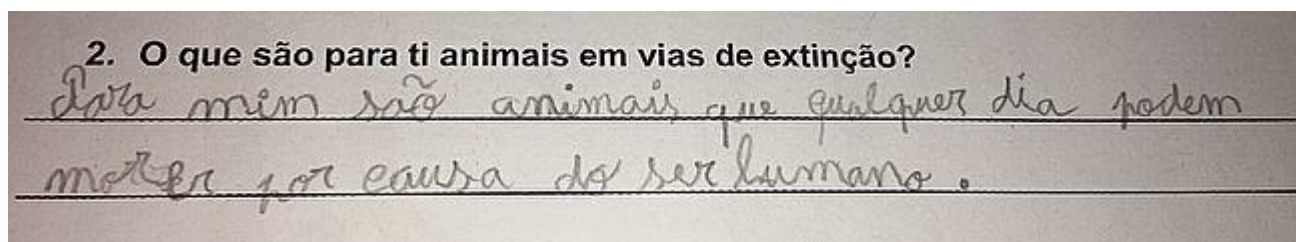 2. O que são para ti animais em vias de extinção?
Para mim são animais que qualquer dia podem
morrer por causa do ser humano.